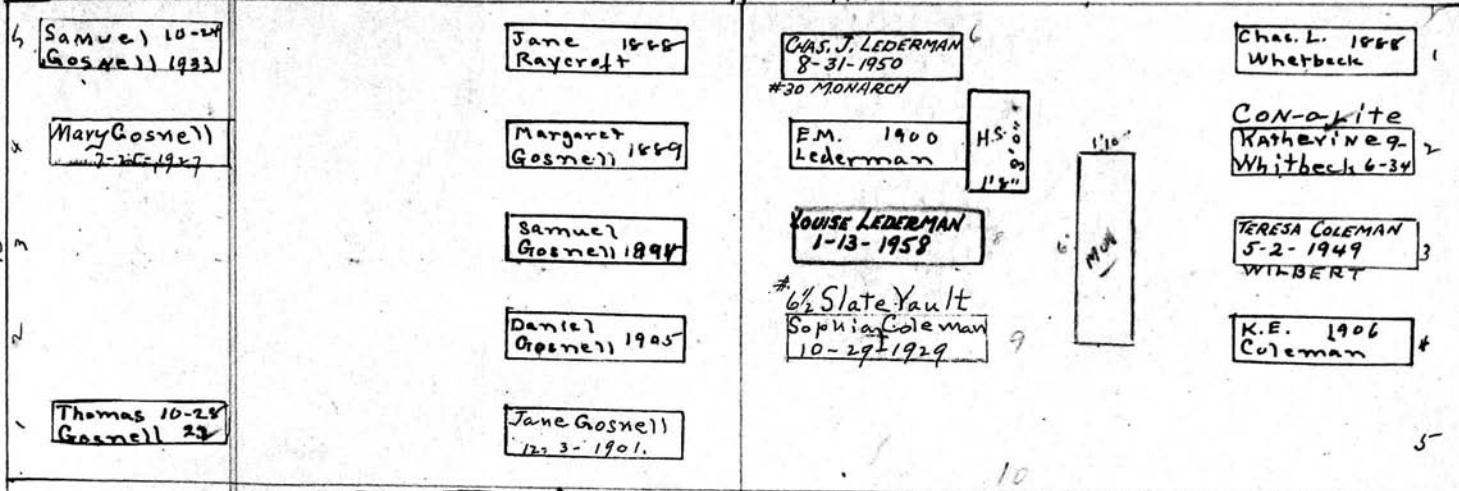 5
Samuel 10-24
Gosnell 1933
4
Mary Gosnell
1927
3
2
1
Thomas 10-28
Gosnell 22
Jane 1888
Raycroft
Margaret
Gosnell 1889
Samuel
Gosnell 1894
Daniel
Gosnell 1905
Jane Gosnell
12-3-1901.
CHAS. J. LEDERMAN 6
8-31-1950
#30 MONARCH
E.M. 1900
Lederman
H.S.
3'0"
1'8"
LOUISE LEDERMAN
1-13-1958
8
#6½ Slate Vault
Sophia Coleman
10-29-1929
9
10
1'10"
6'
Mon
Chas. L. 1888
Whetbeck
1
CON-O-LITE
Katherine 9-
Whitbeck 6-34
2
TERESA COLEMAN
5-2-1949
WILBERT
3
K.E. 1906
Coleman
4
5